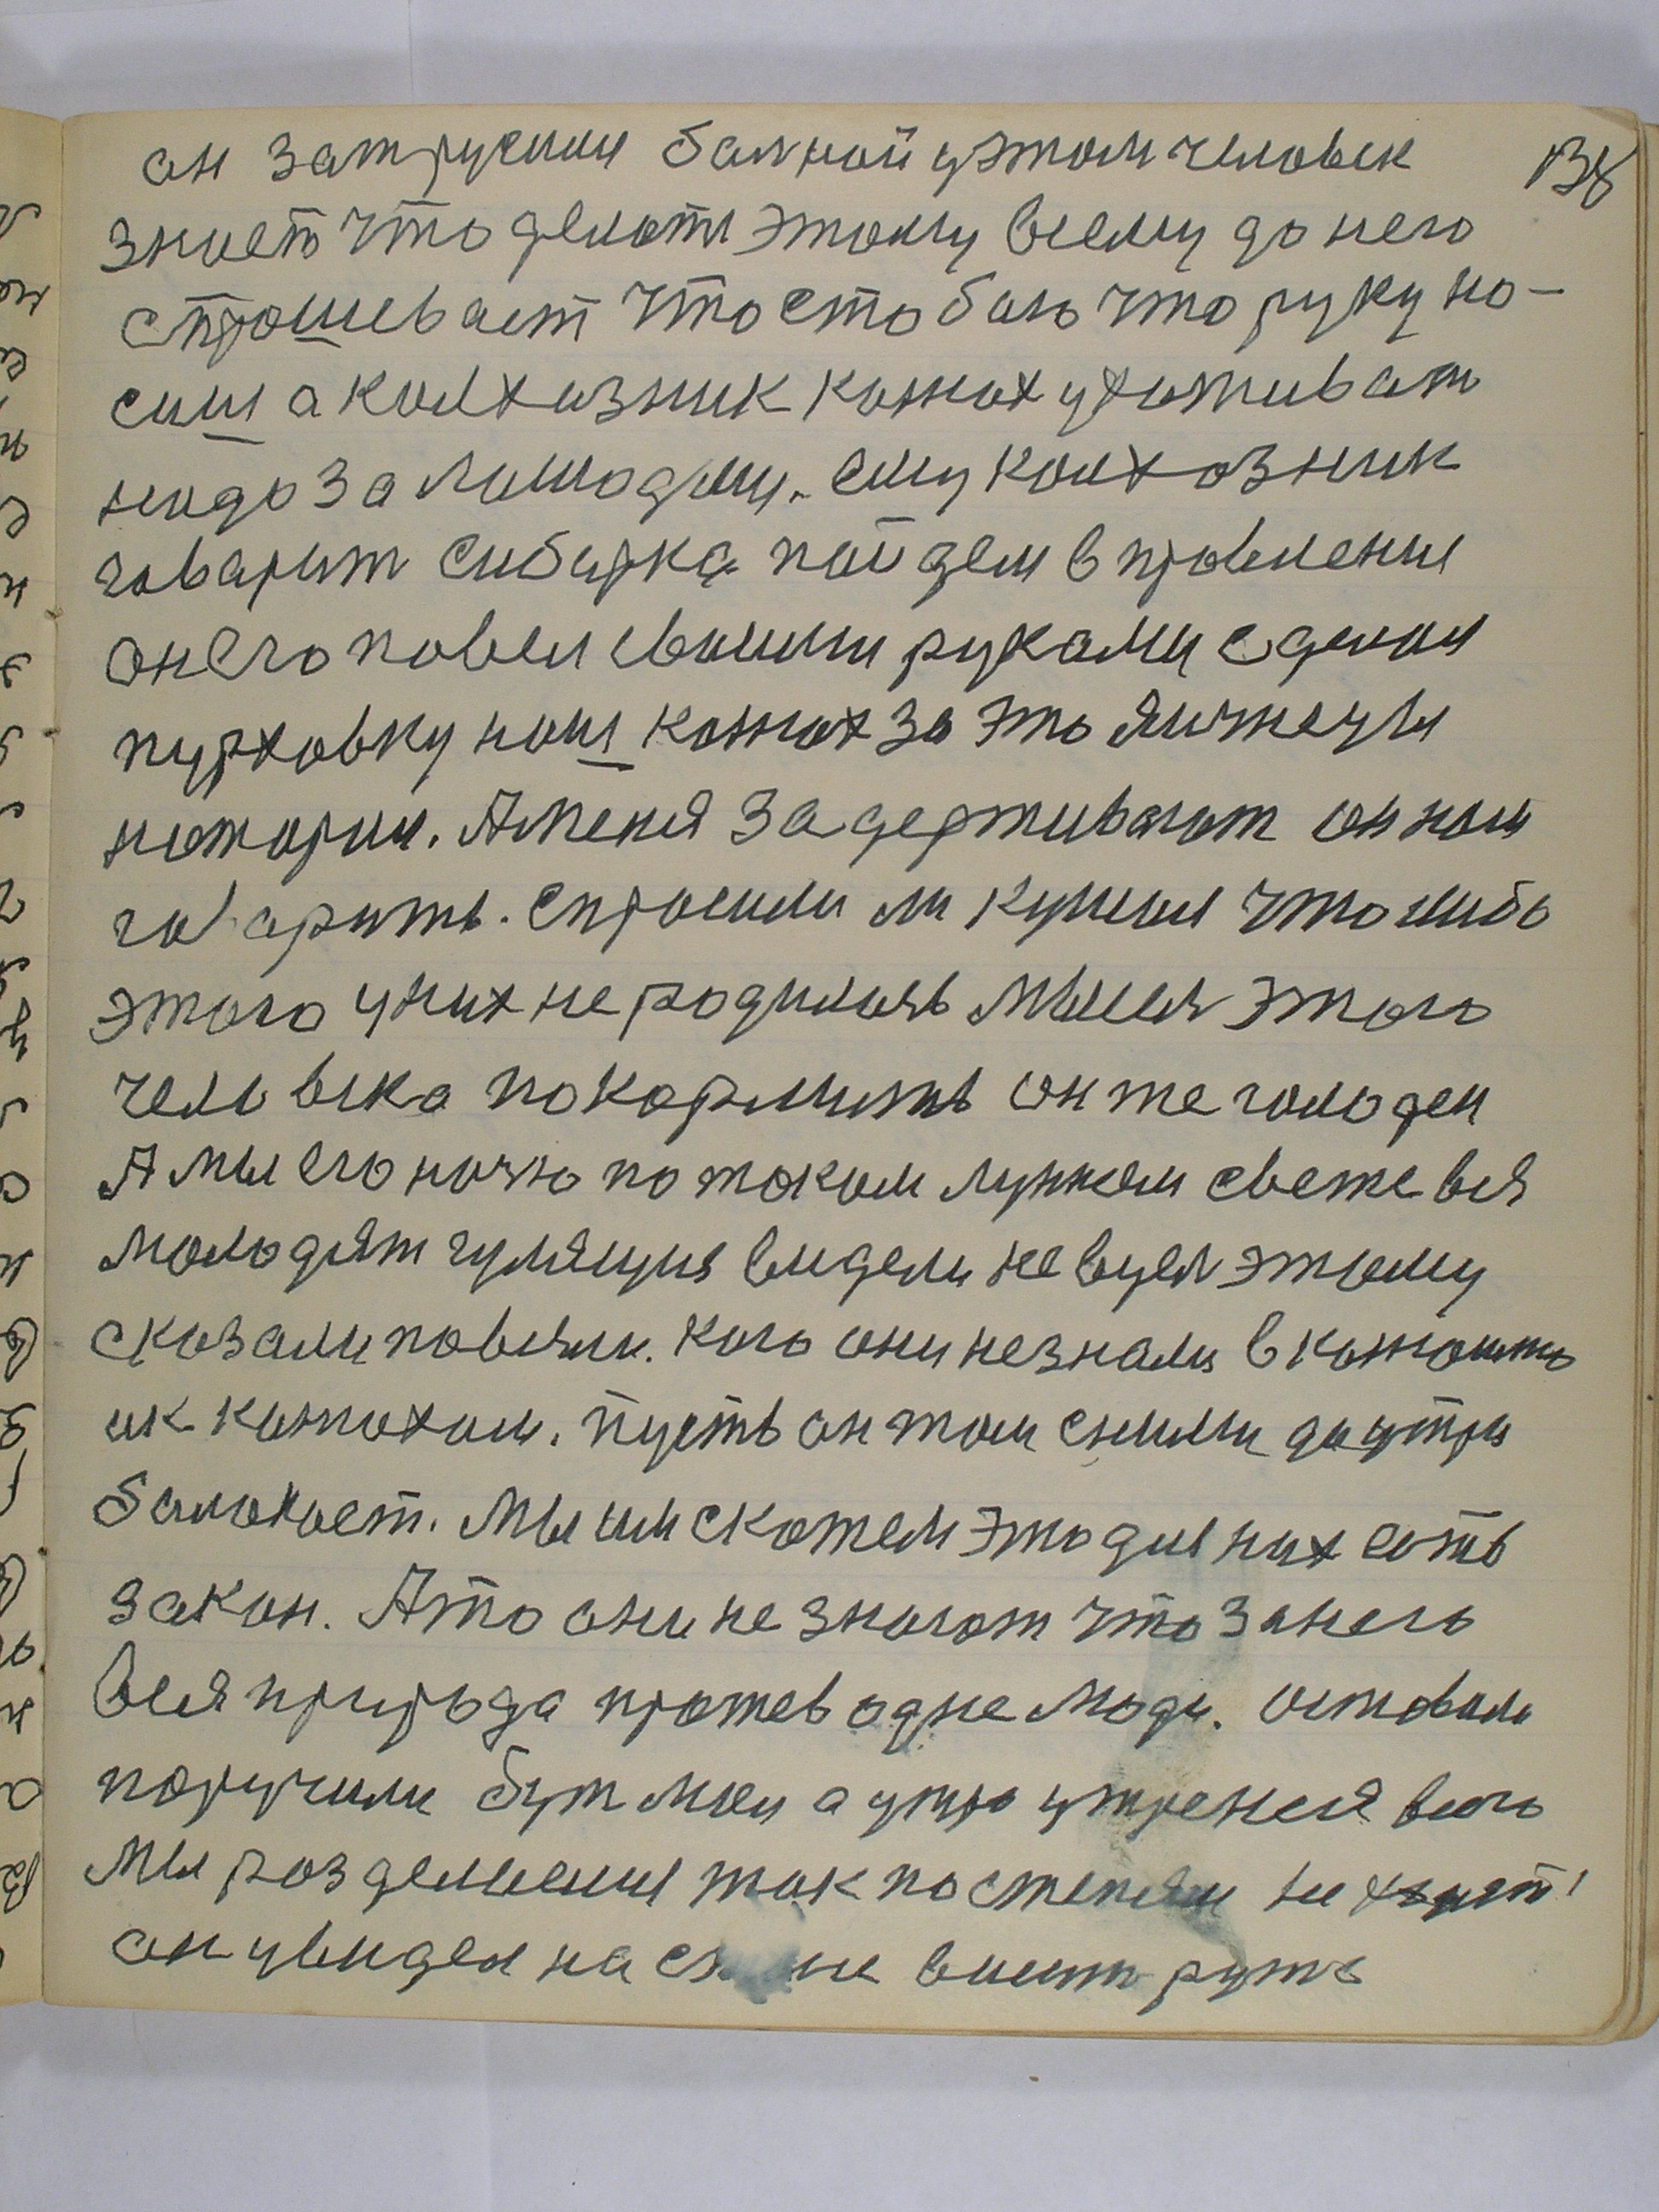 он затрусил балной у этом человек
138
знает что делоти этому всему до него
спрошевает что сто боль что руку но-
сиш а колхозник конюх ухаживать
нидо за лошодми. ему колхозник
говарит сибирка пойдем в провления
он его повел своими руками сделал
пурховку наш конюх за это
натории. А меня задерживают он нам
говарить. спросили ли кушал что либо
этого у них не родилось мысля этого
человека покормить он же голоден
А мы его ночью по таком лунном свете вся
молодят гулящия видели не вуел этому
сказали повели. кого они не знали в
ик конюхам. пусть он там сними до утра
балокает. мы им скажем это для них есть
закон. А то они не знают что за него
вся природа против одне люди. оставили
поручили бут мои а утро утренея всего
мы розделися так по степям не
он увидел на висит ружь